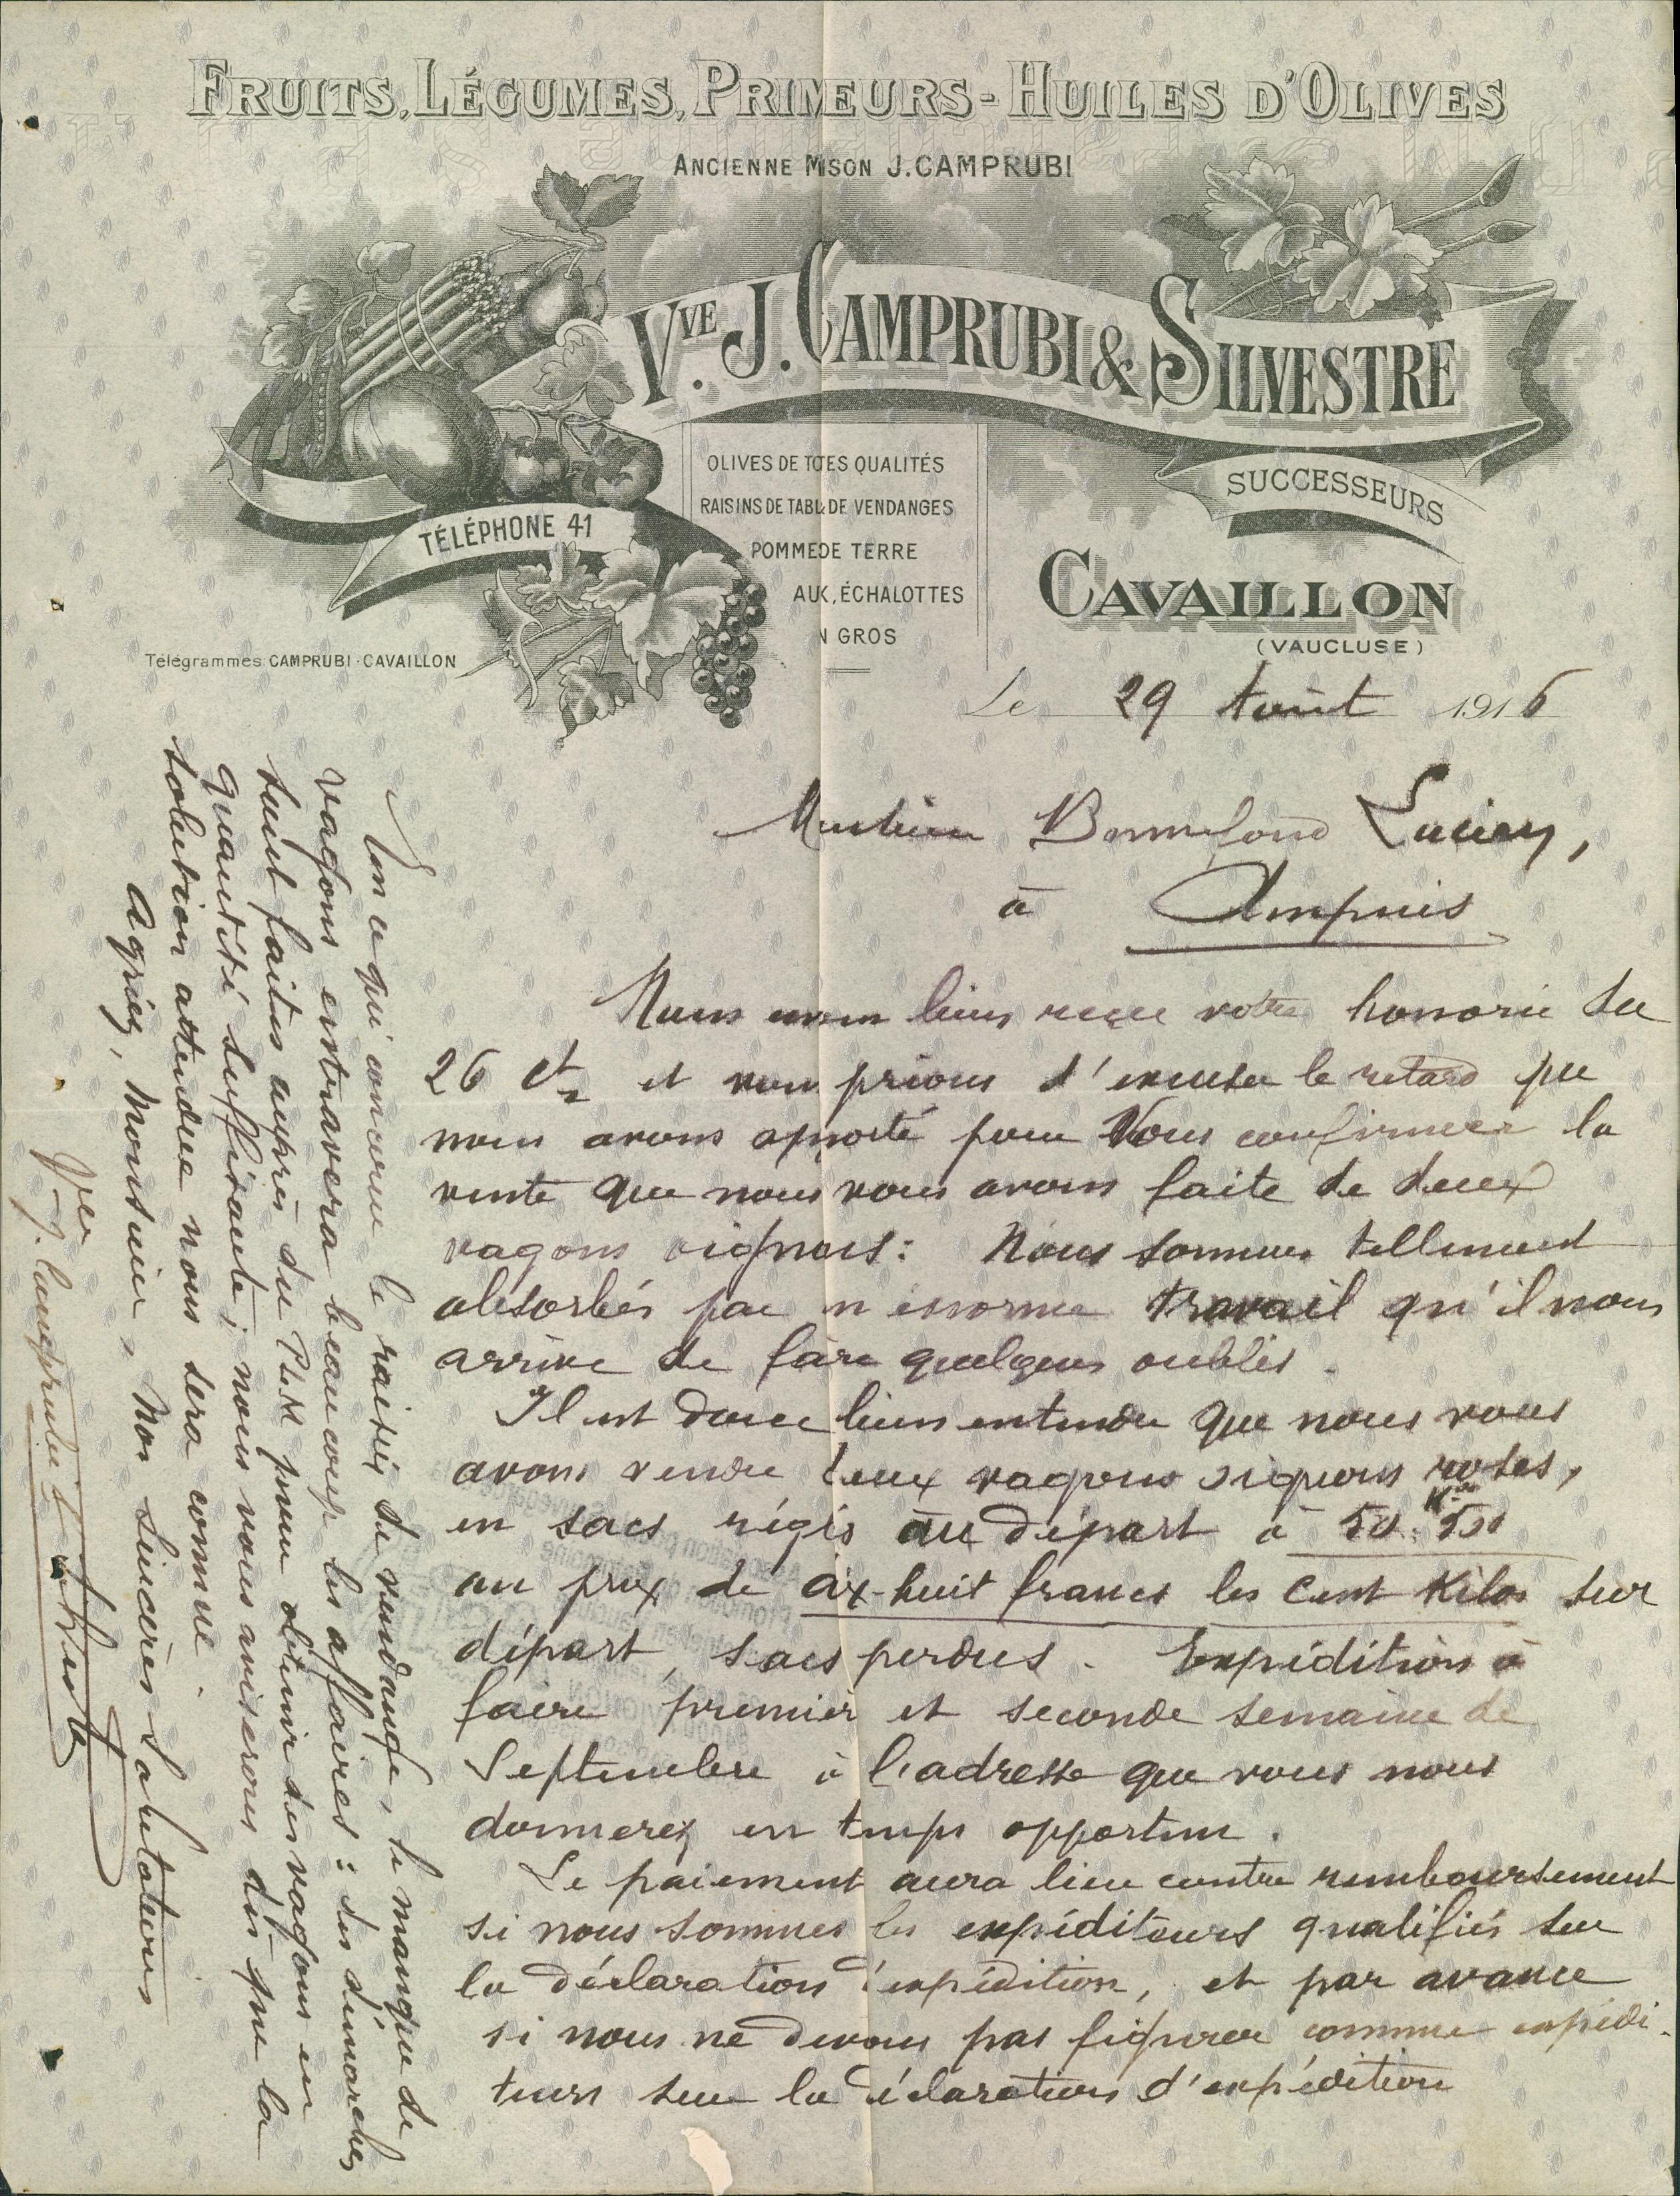 FRUITS, LÉGUMES, PRIMEURS - HUILES D'OLIVES
ANCIENNE MSON J. CAMPRUBI
VVE J. CAMPRUBI & SILVESTRE
SUCCESSEURS
OLIVES DE TOTES QUALITÉS
RAISINS DE TABL DE VENDANGES
POMMEDE TERRE
AUX, ÉCHALOTTES
N GROS
TÉLÉPHONE 41
CAVAILLON
(VAUCLUSE)
Télégrammes: CAMPRUBI-CAVAILLON
Le 29 Août 1916
Monsieur Bonnefond Lucien,
à Ampuis
Nous avons bien reçu votre honorée du
26 Ct et vous prions d'excuser le retard que
nous avons apporté pour Vous confirmer la
vente que nous vous avons faite de deux
vagons oignons: Nous sommes tellement
absorbés par un énorme travail qu'il nous
arrive de faire quelques oublis.
Il est donc bien entendu que nous vous
avons vendu deux vagons oignons roses,
en sacs réglés au départ à 50 Kos 500
au prix de dix-huit francs les Cent Kilos sur
départ, sacs perdus. Expédition à
faire premier et seconde semaine de
Septembre à l'adresse que vous nous
donnerez en temps opportun.
Le paiement aura lieu contre remboursement
si nous sommes les expéditeurs qualifiés sur
la déclaration d'expédition, et par avance
si nous ne devons pas figurer comme expédi-
teurs sur la déclaration d'expédition
En ce qui concerne le raisin de vendange, le manque de
vagons entravera beaucoup les affaires: des démarches
sont faites auprès du P.L.M pour obtenir des vagons en
quantité suffisante; nous vous aviserons dès que la
solution attendue nous sera connue.
Agréez, Monsieur, Nos sincères salutations
Vve J. Camprubi & Silvestre